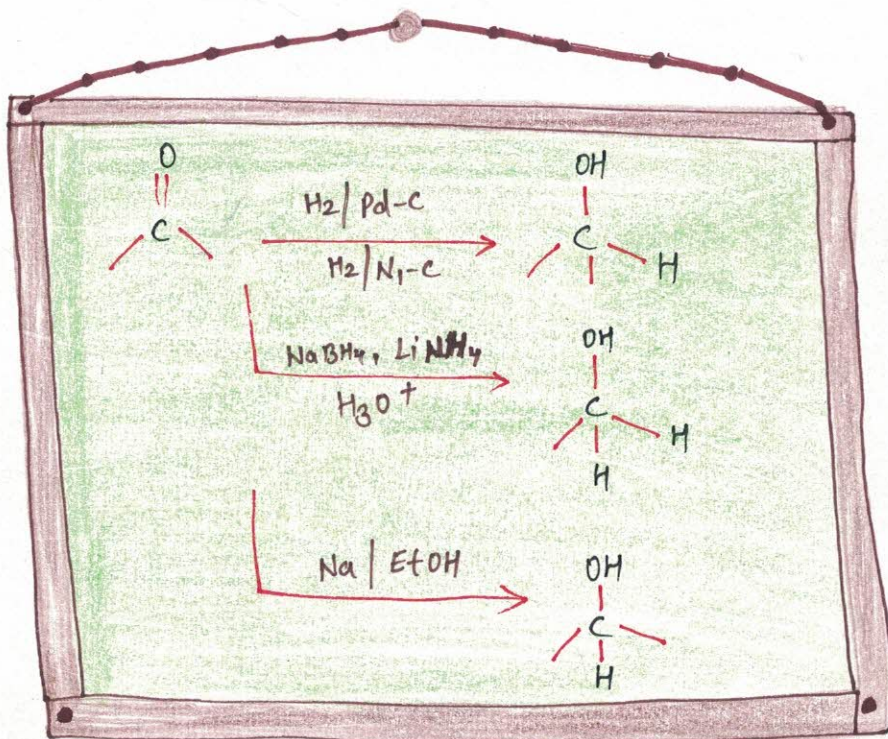 O
C
H₂/Pd-C
H₂/Ni-C
OH
C
H
NaBH₄, LiNH₄
H₃O⁺
OH
C
H
H
Na/EtOH
OH
C
H